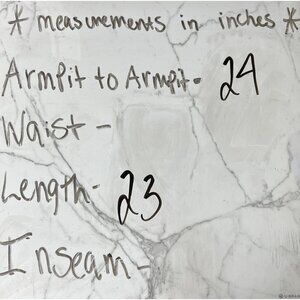 * measurements in inches *
Armpit to Armpit- 24
Waist -
Length- 23
Inseam-